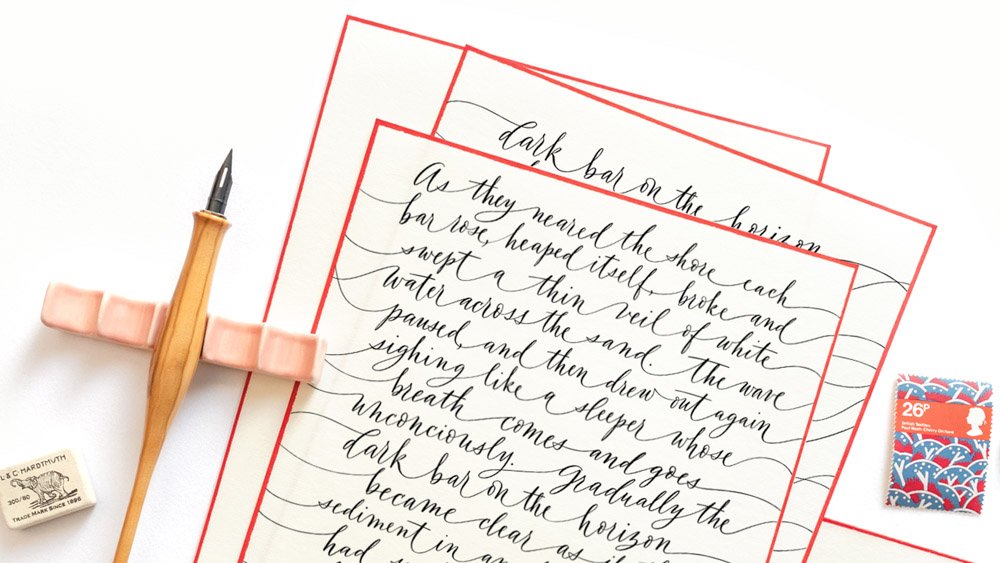 dark bar on the horizon
As they neared the shore each
bar rose, heaped itself, broke and
swept a thin veil of white
water across the sand. The wave
paused, and then drew out again
sighing like a sleeper whose
breath comes and goes
unconciously. Gradually the
dark bar on the horizon
became clear as if the
sediment in an
had
L & C HARDTMUTH
300/80
TRADE MARK SINCE 1896
26P
British Textiles